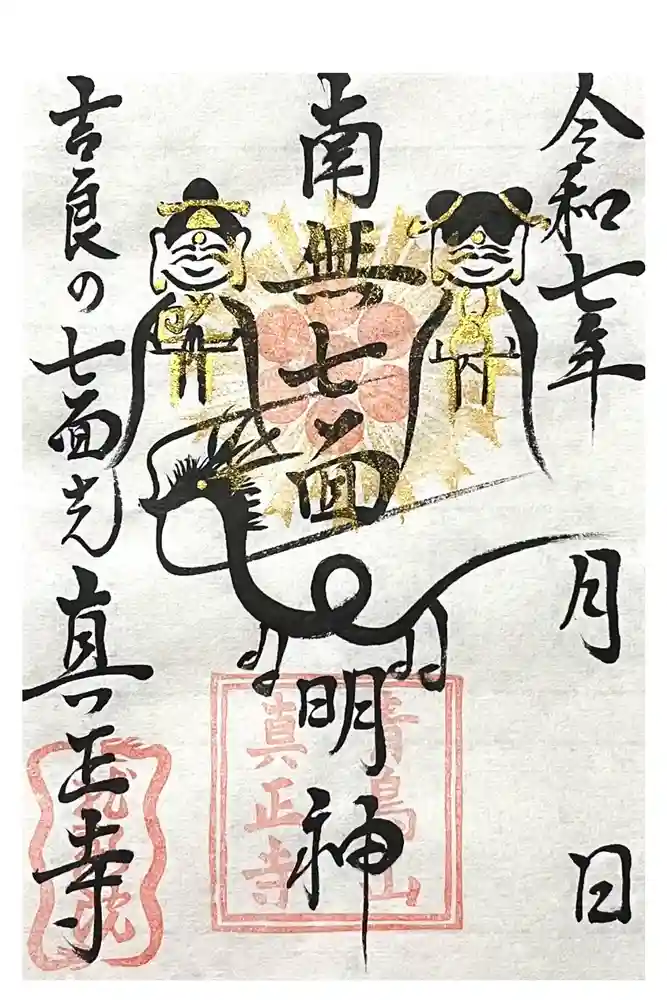 令和七年 月 日
南無七面明神
吉良の七面さん
真正寺
青鳥山
真正寺